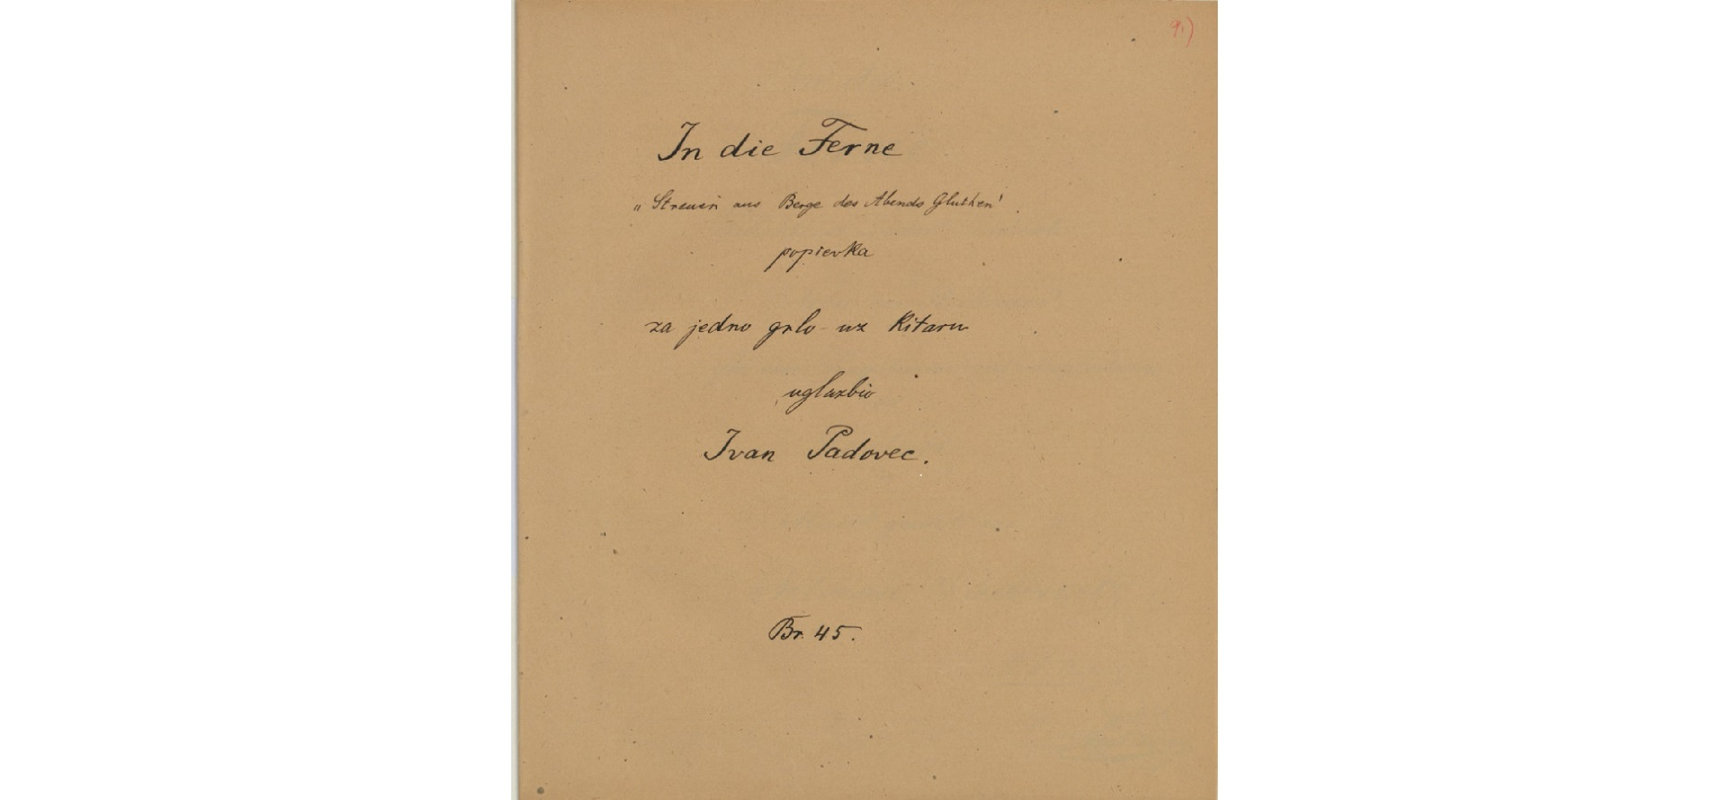 9.)
In die Ferne
„Streuen aus Berge des Abends Gluthen'.
popievka
za jedno grlo uz kitaru
uglazbio
Ivan Padovec.
Br. 45.